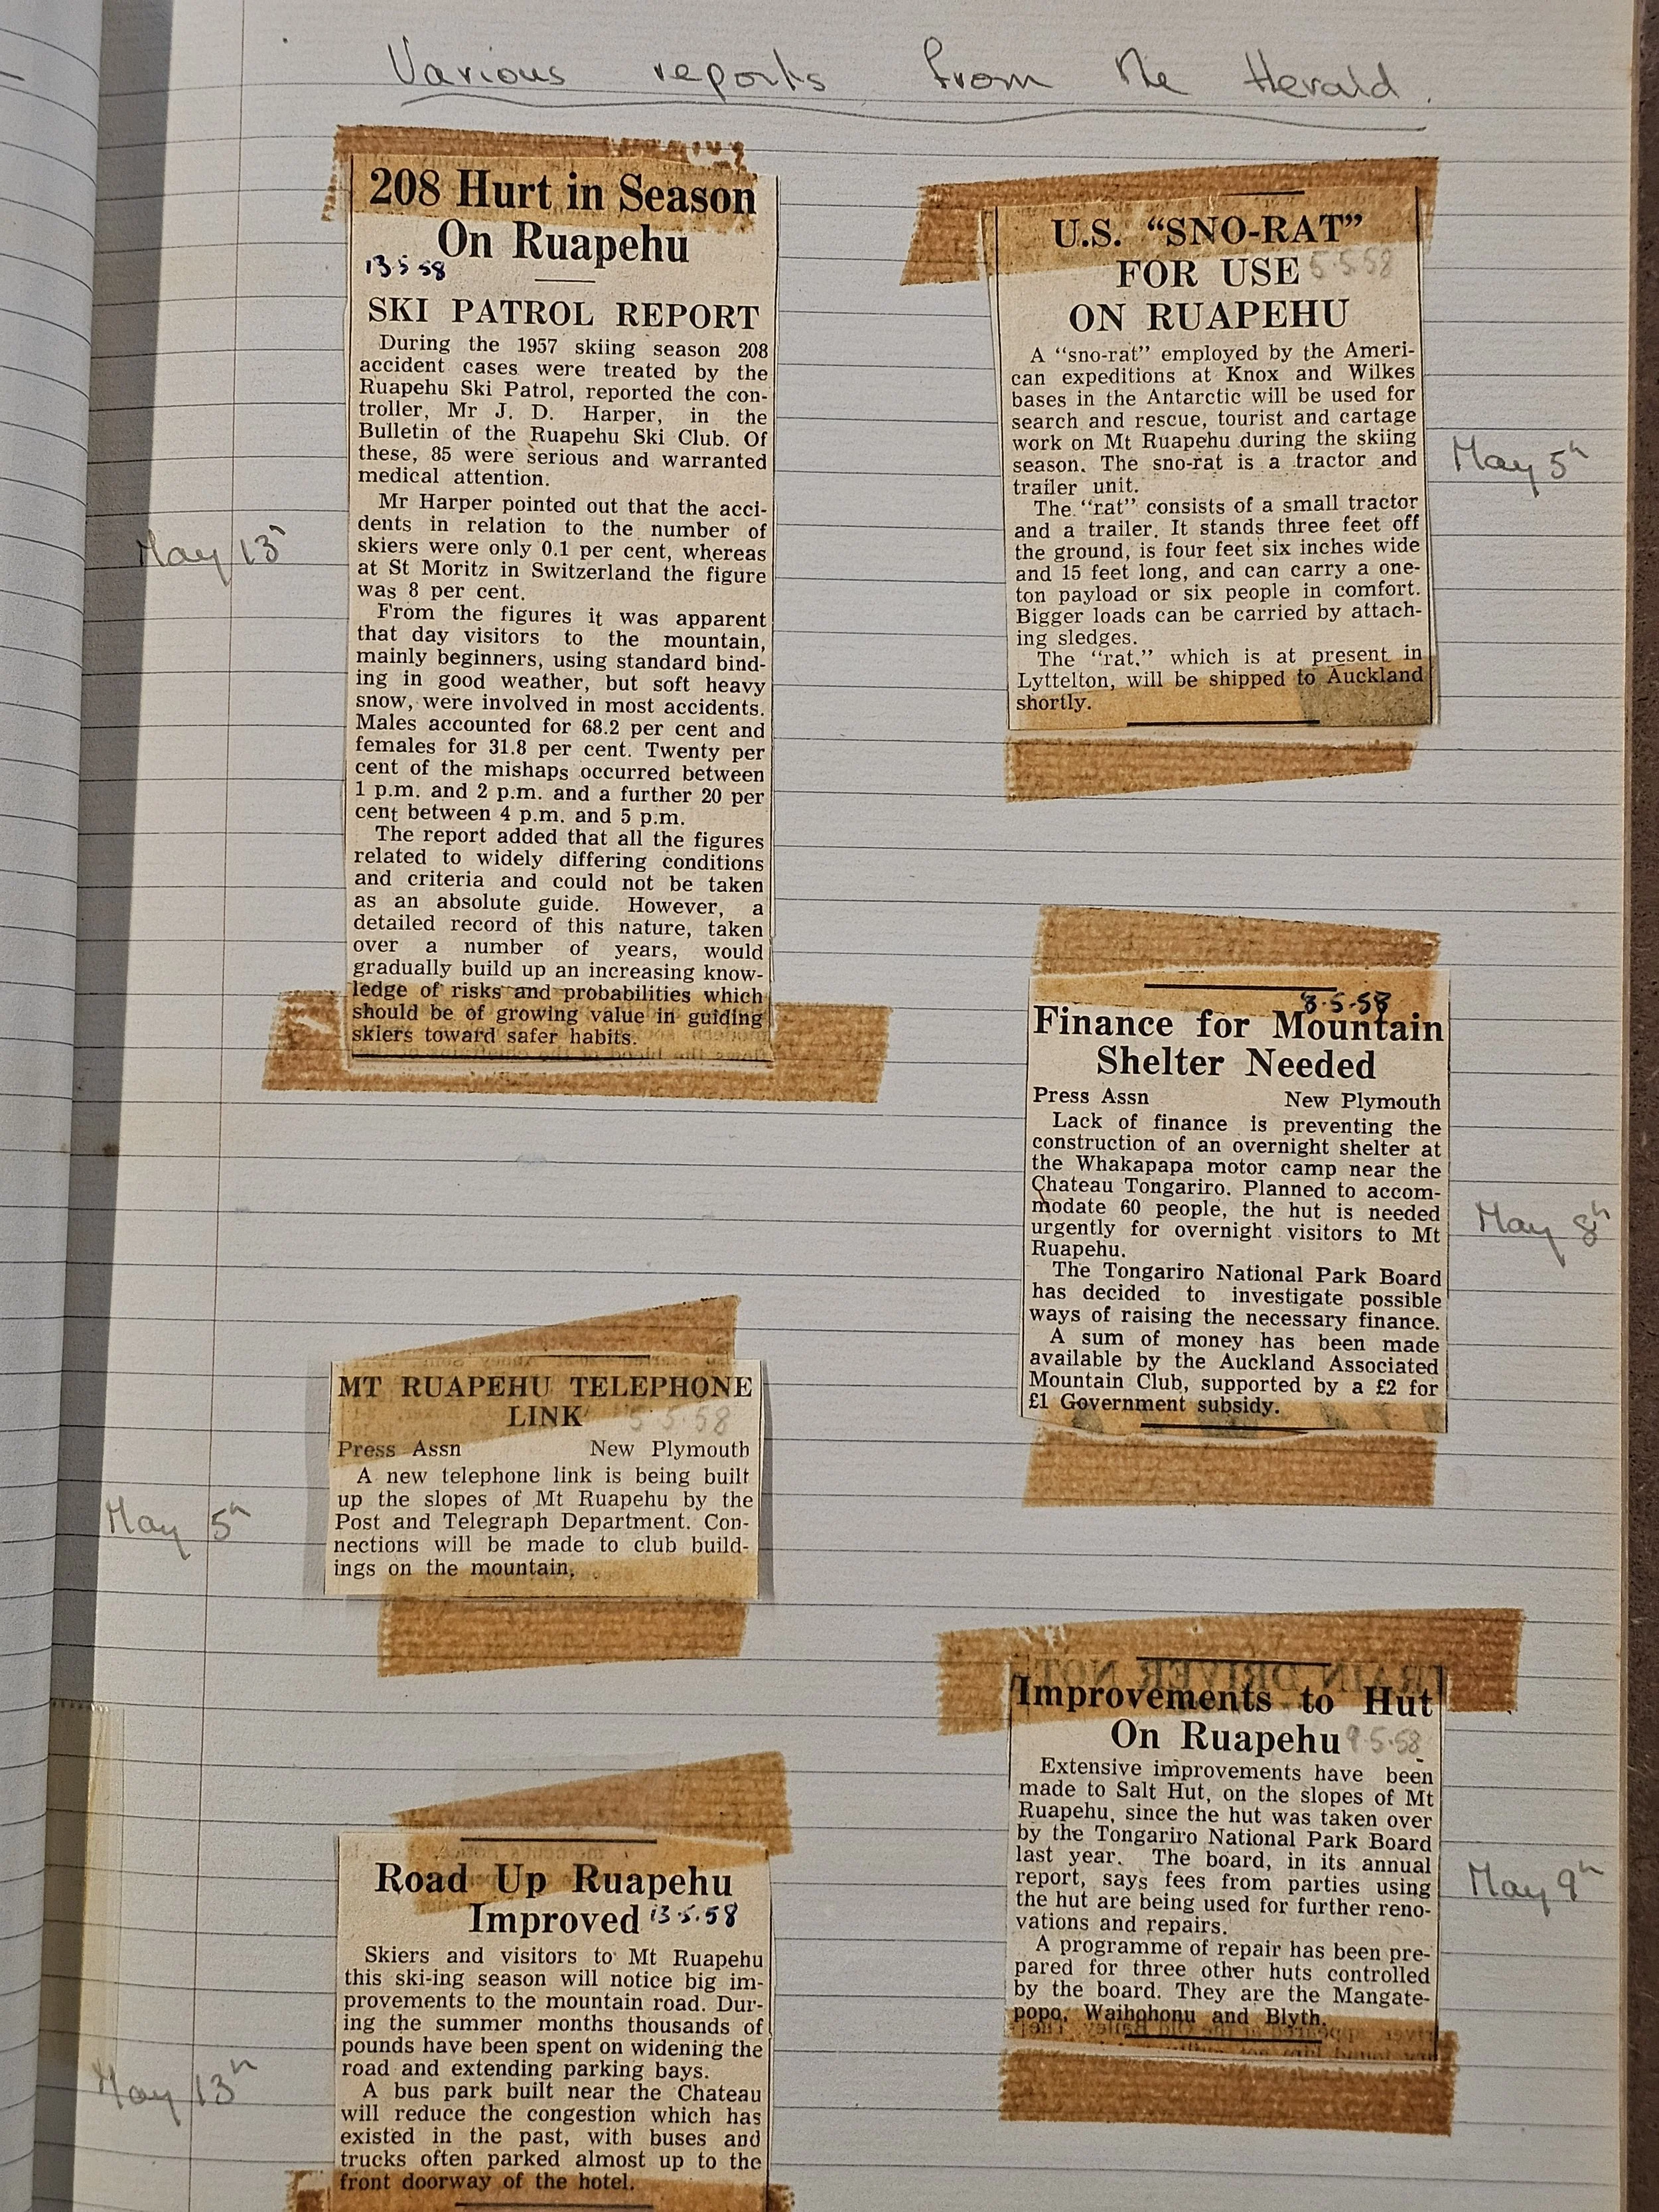 Various reports from the Herald.
208 Hurt in Season
On Ruapehu
13.5.58
SKI PATROL REPORT
During the 1957 skiing season 208
accident cases were treated by the
Ruapehu Ski Patrol, reported the con-
troller, Mr J. D. Harper, in the
Bulletin of the Ruapehu Ski Club. Of
these, 85 were serious and warranted
medical attention.
Mr Harper pointed out that the acci-
dents in relation to the number of
skiers were only 0.1 per cent, whereas
at St Moritz in Switzerland the figure
was 8 per cent.
From the figures it was apparent
that day visitors to the mountain,
mainly beginners, using standard bind-
ing in good weather, but soft heavy
snow, were involved in most accidents.
Males accounted for 68.2 per cent and
females for 31.8 per cent. Twenty per
cent of the mishaps occurred between
1 p.m. and 2 p.m. and a further 20 per
cent between 4 p.m. and 5 p.m.
The report added that all the figures
related to widely differing conditions
and criteria and could not be taken
as an absolute guide. However, a
detailed record of this nature, taken
over a number of years, would
gradually build up an increasing know-
ledge of risks and probabilities which
should be of growing value in guiding
skiers toward safer habits.
May 13h
MT RUAPEHU TELEPHONE
LINK 5.5.58
Press Assn New Plymouth
A new telephone link is being built
up the slopes of Mt Ruapehu by the
Post and Telegraph Department. Con-
nections will be made to club build-
ings on the mountain.
May 5h
Road Up Ruapehu
Improved 13.5.58
Skiers and visitors to Mt Ruapehu
this ski-ing season will notice big im-
provements to the mountain road. Dur-
ing the summer months thousands of
pounds have been spent on widening the
road and extending parking bays.
A bus park built near the Chateau
will reduce the congestion which has
existed in the past, with buses and
trucks often parked almost up to the
front doorway of the hotel.
May 13h
U.S. "SNO-RAT"
FOR USE 5.5.58
ON RUAPEHU
A "sno-rat" employed by the Ameri-
can expeditions at Knox and Wilkes
bases in the Antarctic will be used for
search and rescue, tourist and cartage
work on Mt Ruapehu during the skiing
season. The sno-rat is a tractor and
trailer unit.
The "rat" consists of a small tractor
and a trailer. It stands three feet off
the ground, is four feet six inches wide
and 15 feet long, and can carry a one-
ton payload or six people in comfort.
Bigger loads can be carried by attach-
ing sledges.
The "rat," which is at present in
Lyttelton, will be shipped to Auckland
shortly.
May 5h
8.5.58
Finance for Mountain
Shelter Needed
Press Assn New Plymouth
Lack of finance is preventing the
construction of an overnight shelter at
the Whakapapa motor camp near the
Chateau Tongariro. Planned to accom-
modate 60 people, the hut is needed
urgently for overnight visitors to Mt
Ruapehu.
The Tongariro National Park Board
has decided to investigate possible
ways of raising the necessary finance.
A sum of money has been made
available by the Auckland Associated
Mountain Club, supported by a £2 for
£1 Government subsidy.
May 8h
Improvements to Hut
On Ruapehu 9.5.58
Extensive improvements have been
made to Salt Hut, on the slopes of Mt
Ruapehu, since the hut was taken over
by the Tongariro National Park Board
last year. The board, in its annual
report, says fees from parties using
the hut are being used for further reno-
vations and repairs.
A programme of repair has been pre-
pared for three other huts controlled
by the board. They are the Mangate-
popo, Waihohonu and Blyth.
May 9h